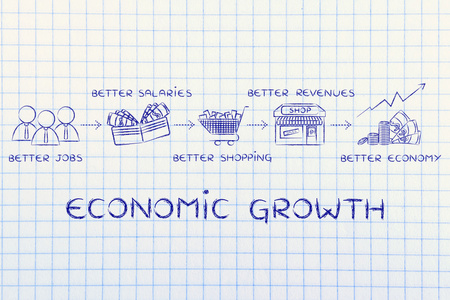 BETTER SALARIES
BETTER REVENUES
SHOP
BETTER JOBS
BETTER SHOPPING
BETTER ECONOMY
ECONOMIC GROWTH